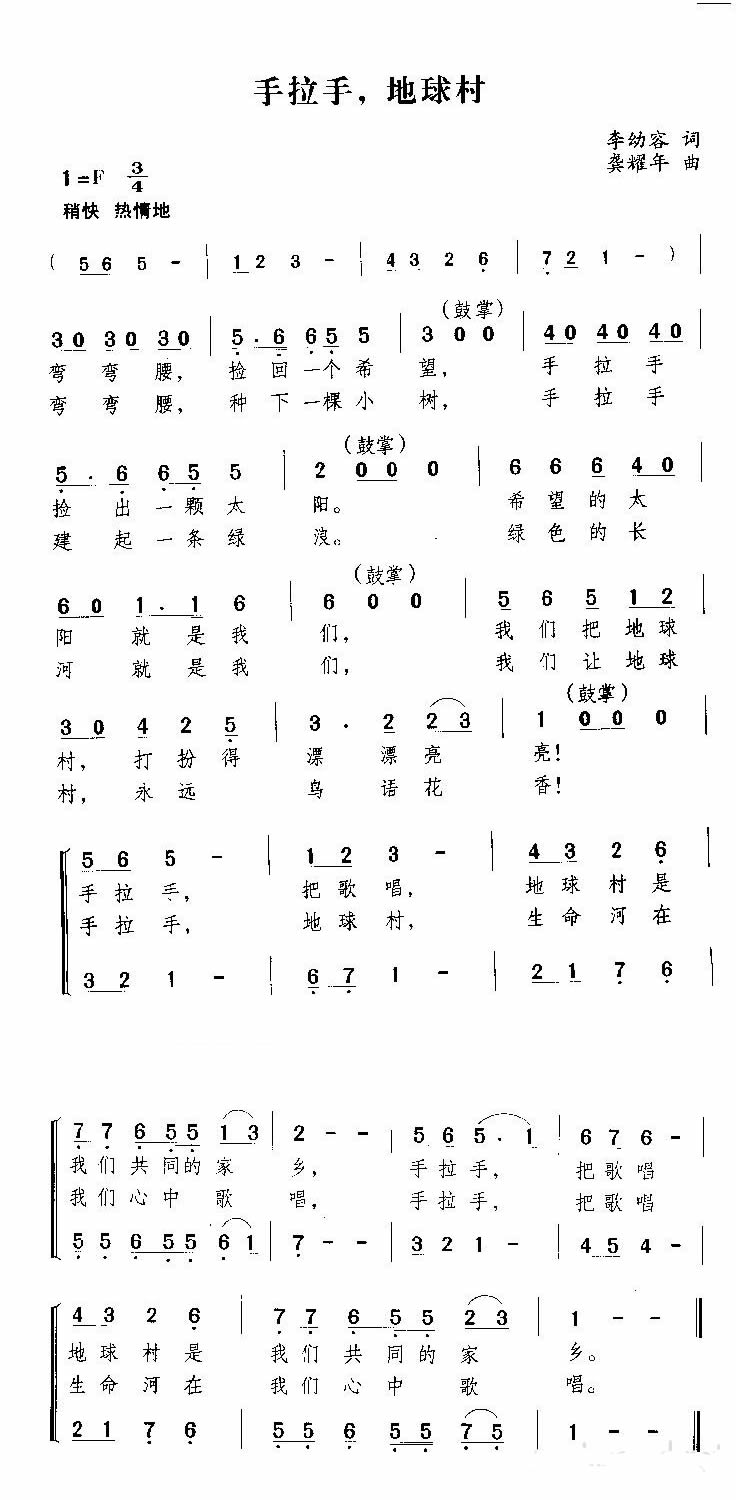 手拉手，地球村
李幼容 词
1=F 3/4 龚耀年 曲
稍快 热情地
( 5 6 5 - | 1 2 3 - | 4 3 2 6 | 7 2 1 - ) |
(鼓掌)
3 0 3 0 3 0 | 5 . 6 6 5 5 | 3 0 0 | 4 0 4 0 4 0 |
弯 弯 腰， 捡 回 一 个 希 望， 手 拉 手
弯 弯 腰， 种 下 一 棵 小 树， 手 拉 手
(鼓掌)
5 . 6 6 5 5 | 2 0 0 0 0 | 6 6 6 4 0 |
捡 出 一 颗 太 阳。 希 望 的 太
建 起 一 条 绿 浪。 绿 色 的 长
(鼓掌)
6 0 1 . 1 6 | 6 0 0 | 5 6 5 1 2 |
阳 就 是 我 们， 我 们 把 地 球
河 就 是 我 们， 我 们 让 地 球
(鼓掌)
3 0 4 2 5 | 3 . 2 2 3 | 1 0 0 0 0 |
村， 打 扮 得 漂 漂 亮 亮！
村， 永 远 鸟 语 花 香！
5 6 5 - | 1 2 3 - | 4 3 2 6 |
手 拉 手， 把 歌 唱， 地 球 村 是
手 拉 手， 地 球 村， 生 命 河 在
3 2 1 - | 6 7 1 - | 2 1 7 6 |
7 7 6 5 5 1 3 | 2 - - | 5 6 5 . 1 | 6 7 6 - |
我 们 共 同 的 家 乡， 手 拉 手， 把 歌 唱
我 们 心 中 歌 唱， 手 拉 手， 把 歌 唱
5 5 6 5 5 6 1 | 7 - - | 3 2 1 - | 4 5 4 - |
4 3 2 6 | 7 7 6 5 5 2 3 | 1 - - ‖
地 球 村 是 我 们 共 同 的 家 乡。
生 命 河 在 我 们 心 中 歌 唱。
2 1 7 6 | 5 5 6 5 5 7 5 | 1 - - ‖